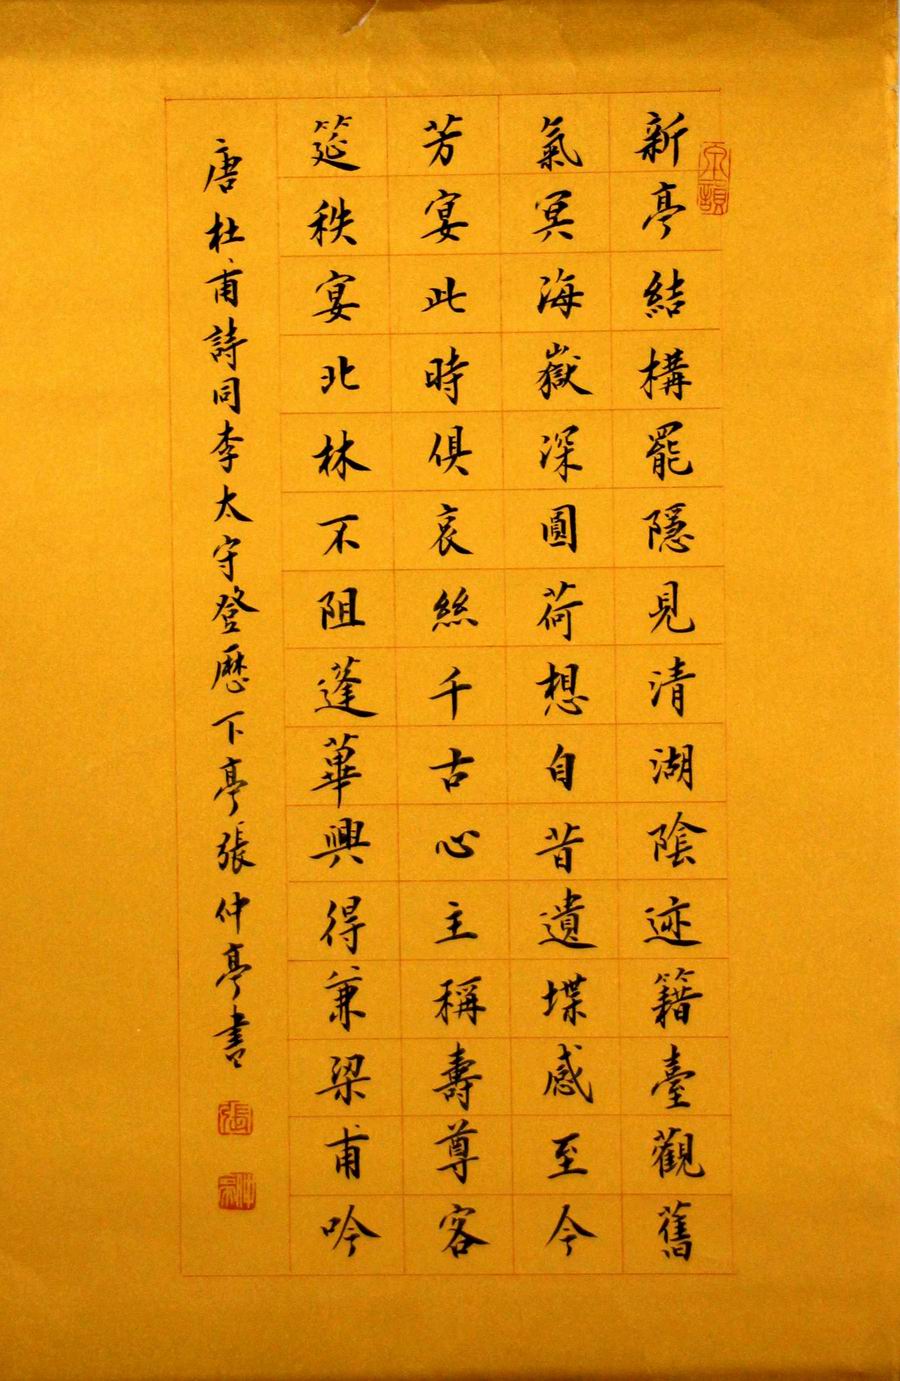 新亭結構罷隱見清湖陰迹籍臺觀舊
氣冥海嶽深圓荷想自昔遺堞感至今
芳宴此時俱哀絲千古心主稱壽尊客
筵秩宴北林不阻蓬蓽興得兼梁甫吟
唐杜甫詩同李太守登歷下亭張仲亭書